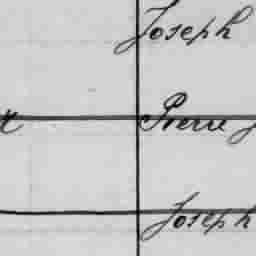 Joseph
Pierre J
Joseph